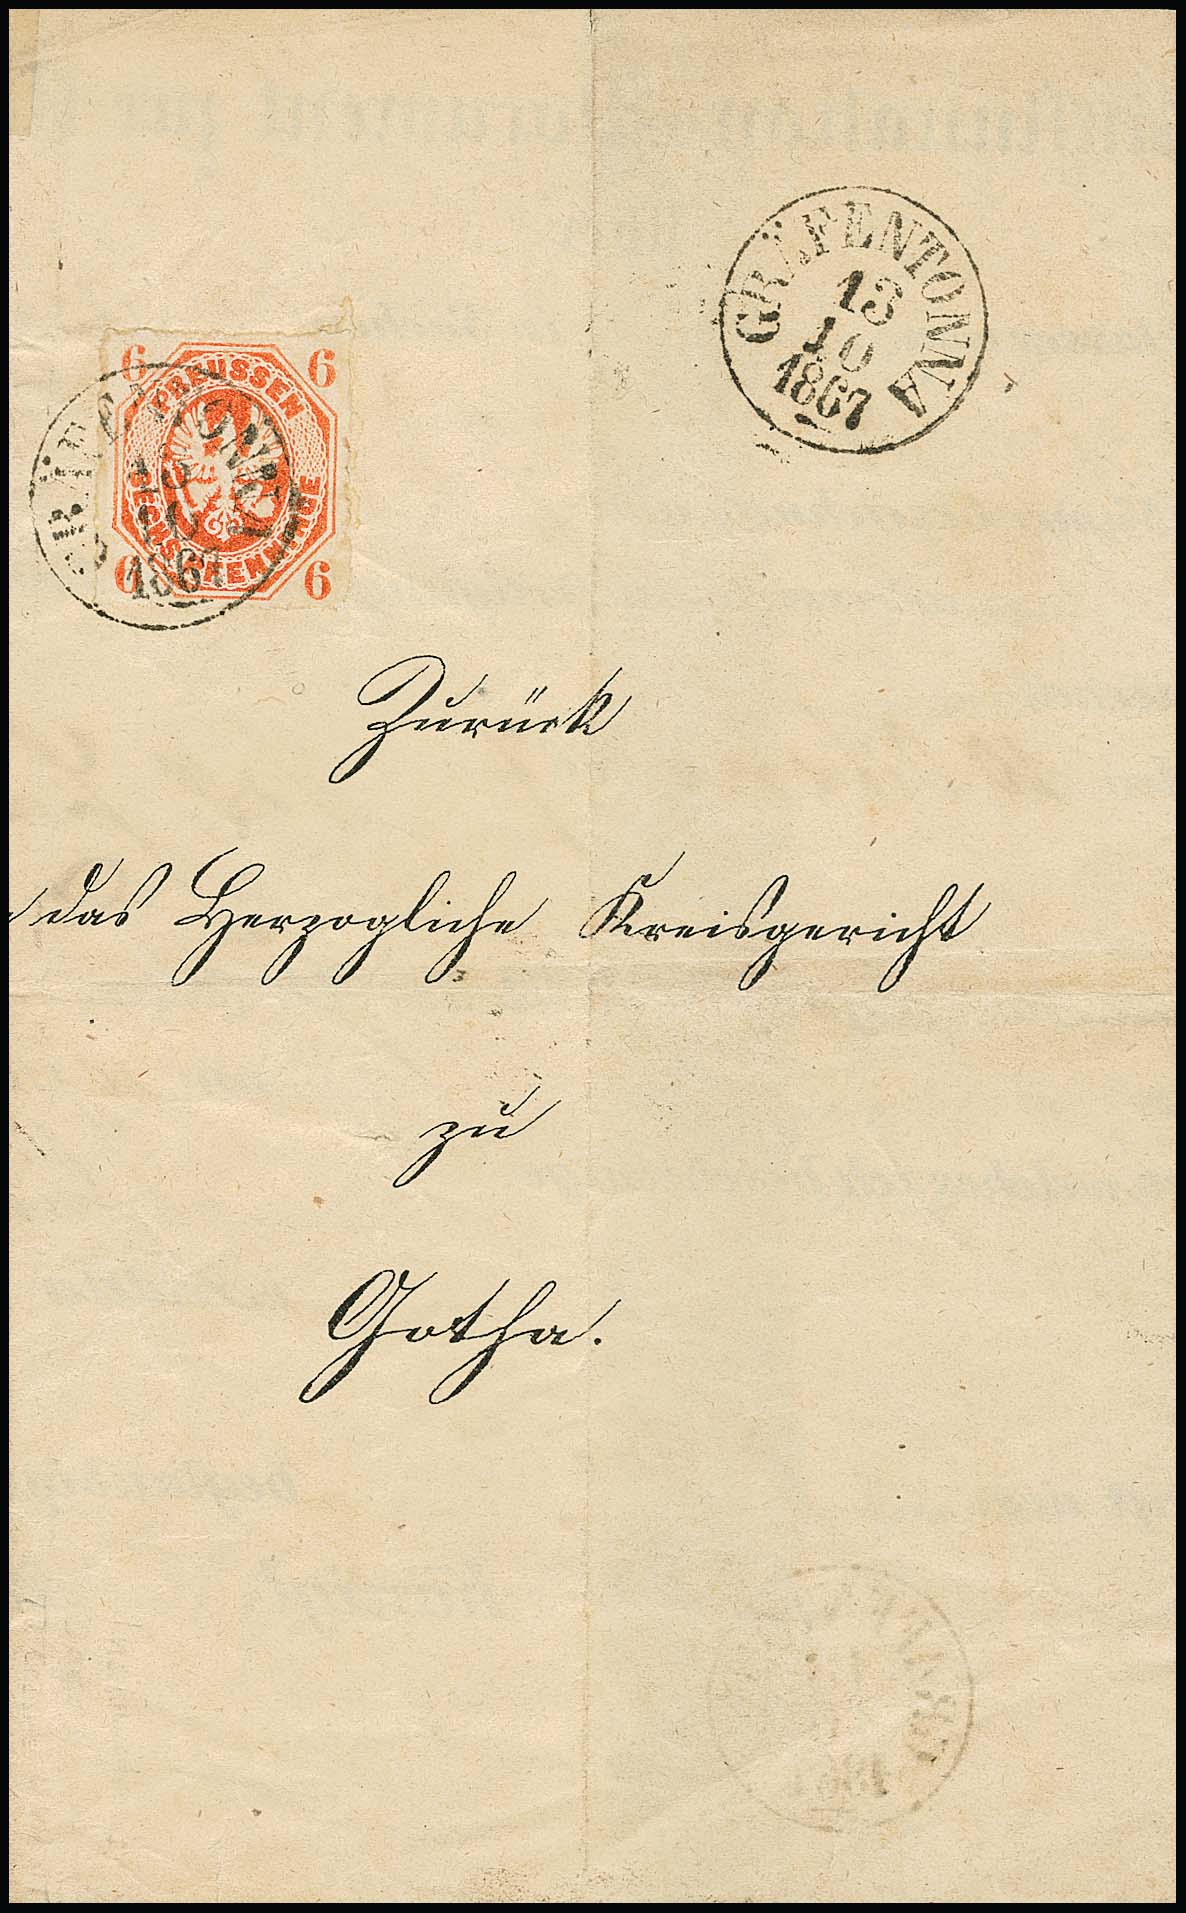 GRÄFENTONNA
13
10
1867
6 6
PREUSSEN
SECHS PFENNINGE
6 6
GRÄFENTONNA
13
10
1867
Zurück
das Herzogliche Kreisgericht
zu
Gotha.